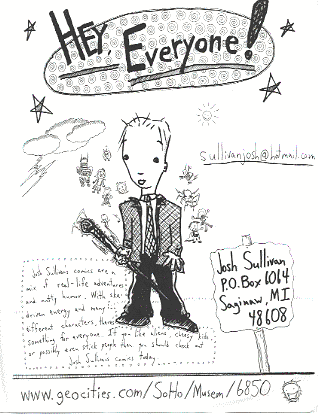 HEY, EVERYONE!
sullivanjosh@hotmail.com
Josh Sullivans comics are a
mix of real-life adventures
and nutty humor. With
driven energy and many
different characters, theres
something for everyone. If you like aliens, cheesy kids
or possibly even stick people then you should check out
Josh Sullivans comics today.
Josh Sullivan
P.O. Box 6064
Saginaw MI
48608
www.geocities.com/SoHo/Musem/6850